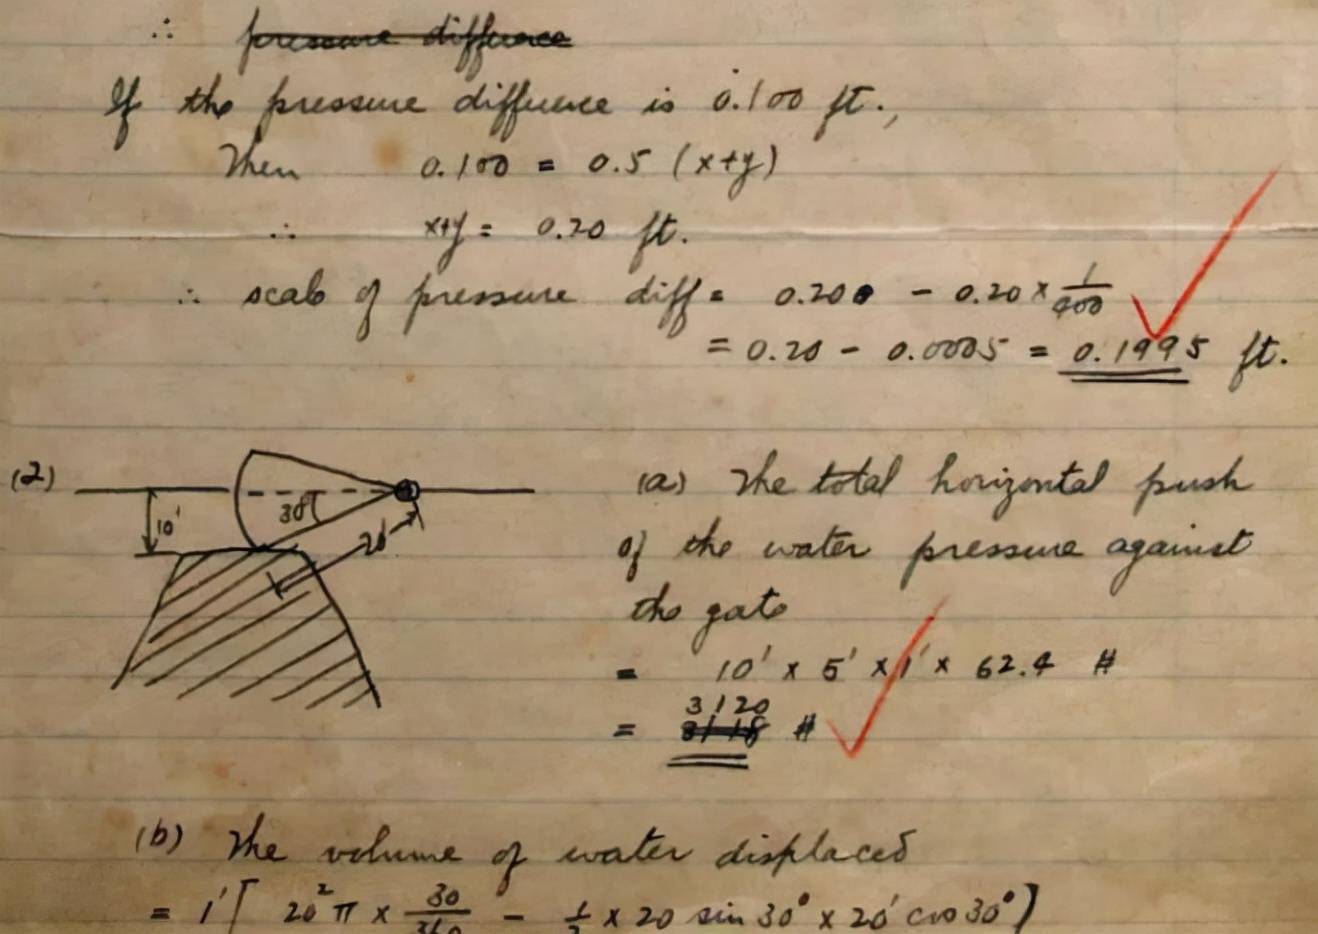 ∴ pressure difference
If the pressure difference is 0.100 ft.,
Then 0.100 = 0.5 (x+y)
∴ x+y = 0.20 ft.
∴ scale of pressure diff = 0.200 - 0.20 × 1/400
= 0.20 - 0.0005 = 0.1995 ft.
(2)
10'
30°
20'
(a) The total horizontal push
of the water pressure against
the gate
= 10' × 5' × 1' × 62.4 #
= 3120 #
(b) The volume of water displaced
= 1' [ 20² π × 30/360 - 1/2 × 20 sin 30° × 20' cos 30° ]